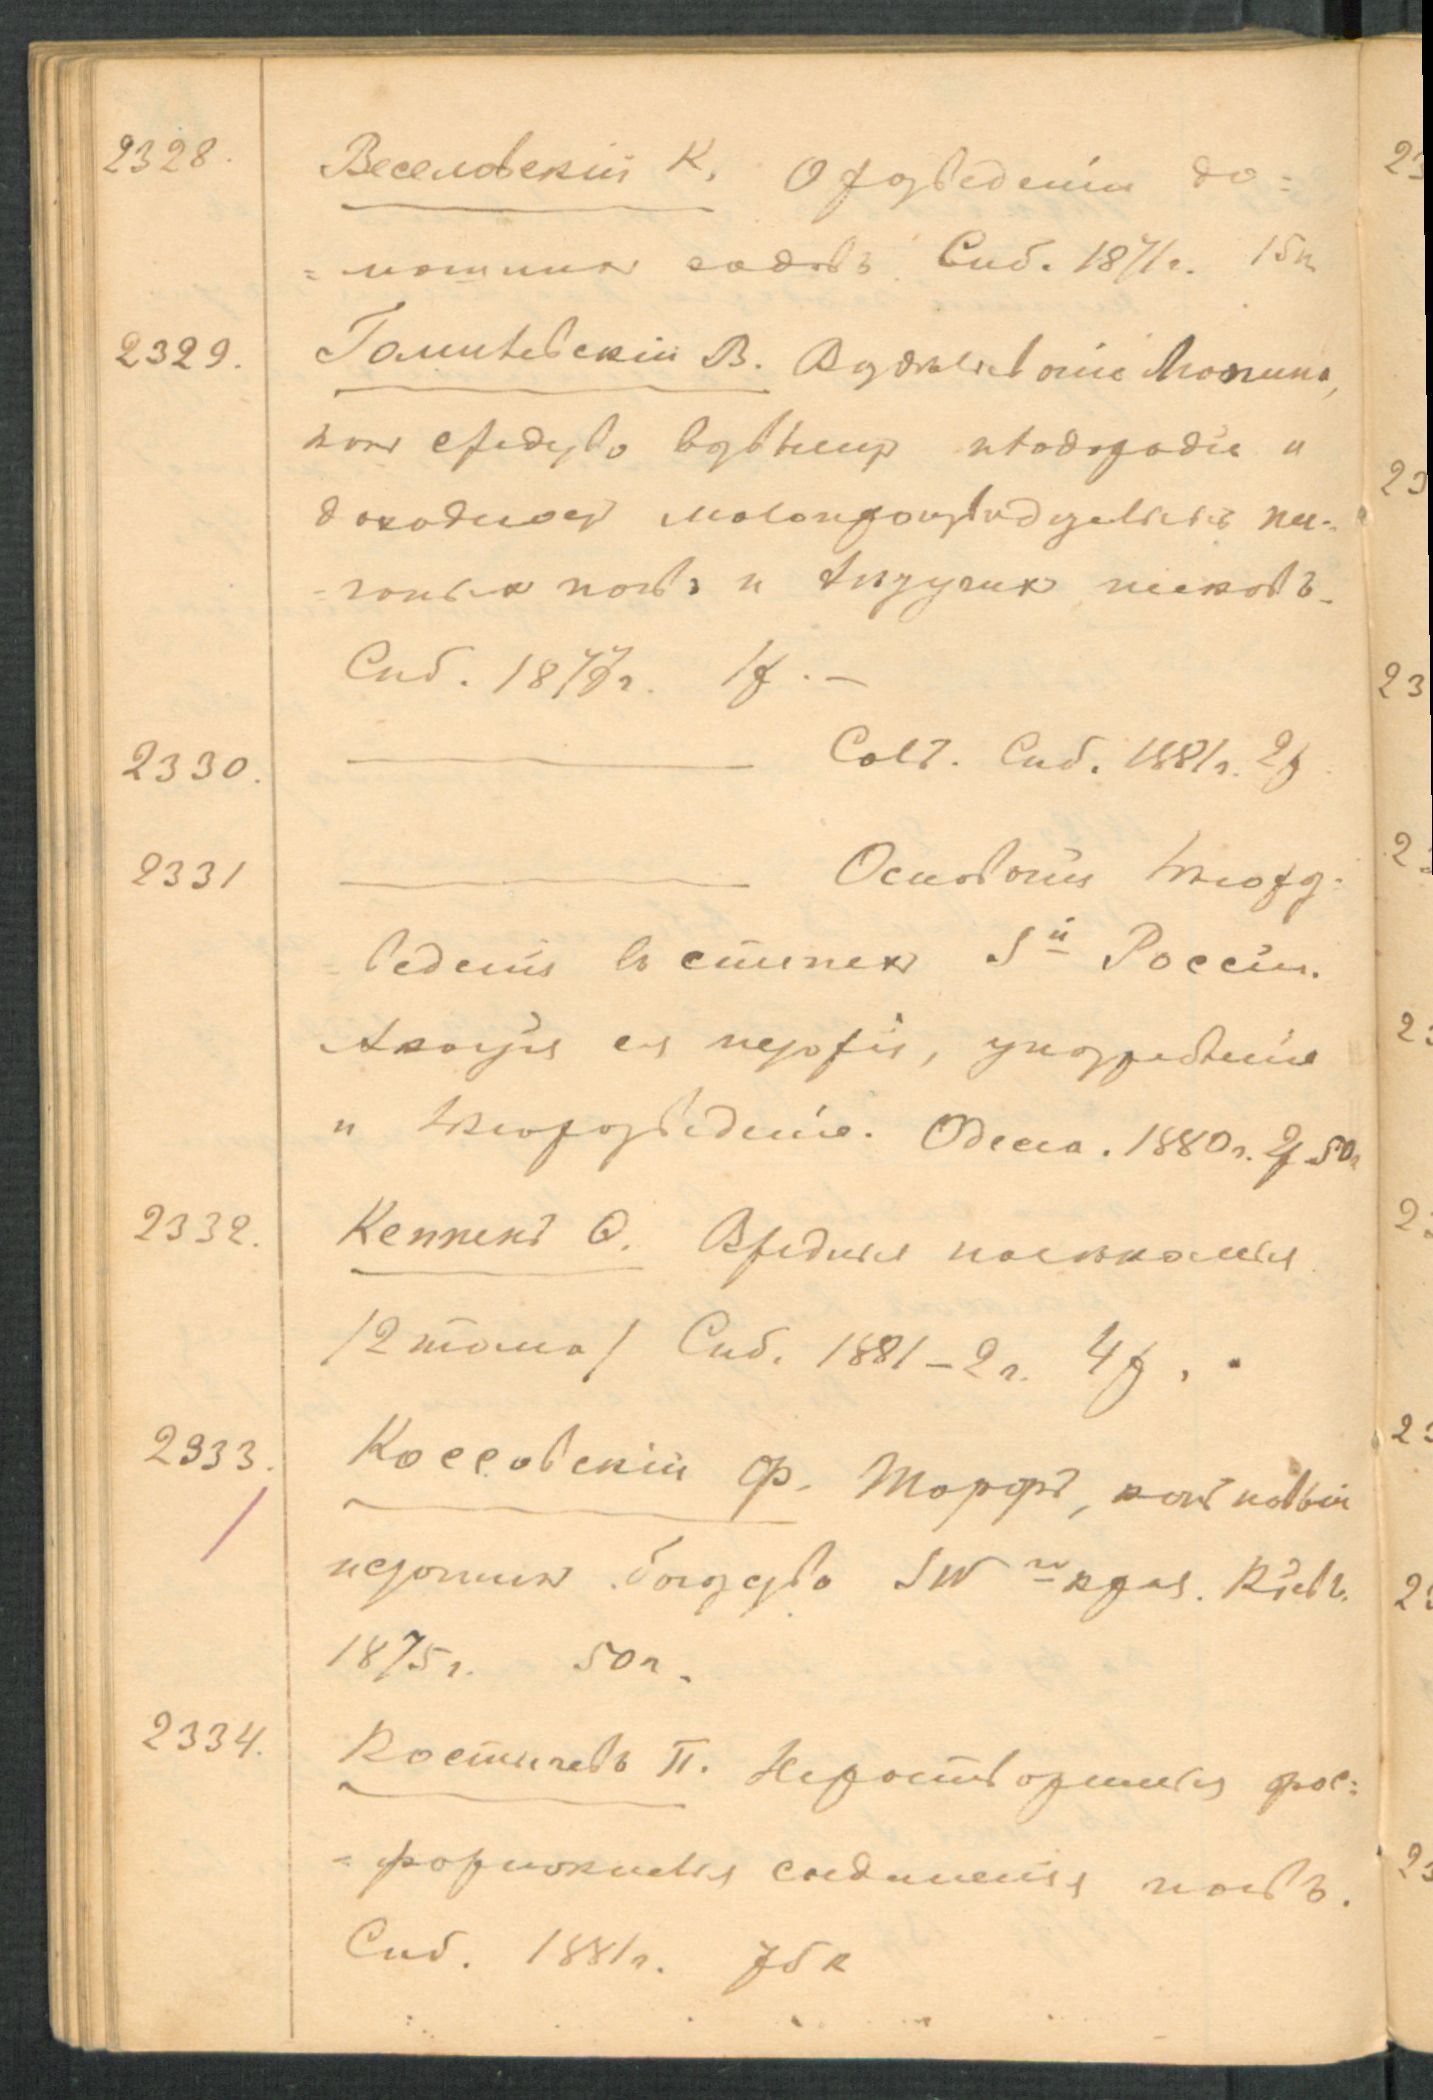 2328. Веселовскій К. О разведеніи до=
=машних садовъ Спб. 1871г. 15к
2329. Гомилевскій В. Воздѣлываніе Люпина,
как средство возвысить плодородіе и
доходность малопроизводительныхъ пе=
=счаных почвъ и летучих песковъ.
Спб. 1877г. 1р. —
2330. Соlт. Спб. 1881г. 2р
2331 Основанія лѣсораз=
=веденія въ степях Sй Россіи.
Акація ея исторія, употребленіе
и лѣсоразведеніе. Одесса. 1880г. 2р. 50к
2332. Кеппенъ Ѳ. Вредныя насѣкомыя
/2 тома/ Спб. 1881–2г. 4р. "
2333. Коссовскій Ф. Торфъ, какъ новый
источник богатства SW го края. Кіевъ.
1875г. 50к.
2334. Костычевъ П. Нерастворимыя фос=
=форнокислыя соединенія почвъ.
Спб. 1881г. 75к